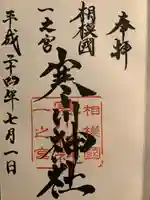 奉拝
相模國
一之宮
寒川神社
平成二十四年七月一日
相模國
一之宮